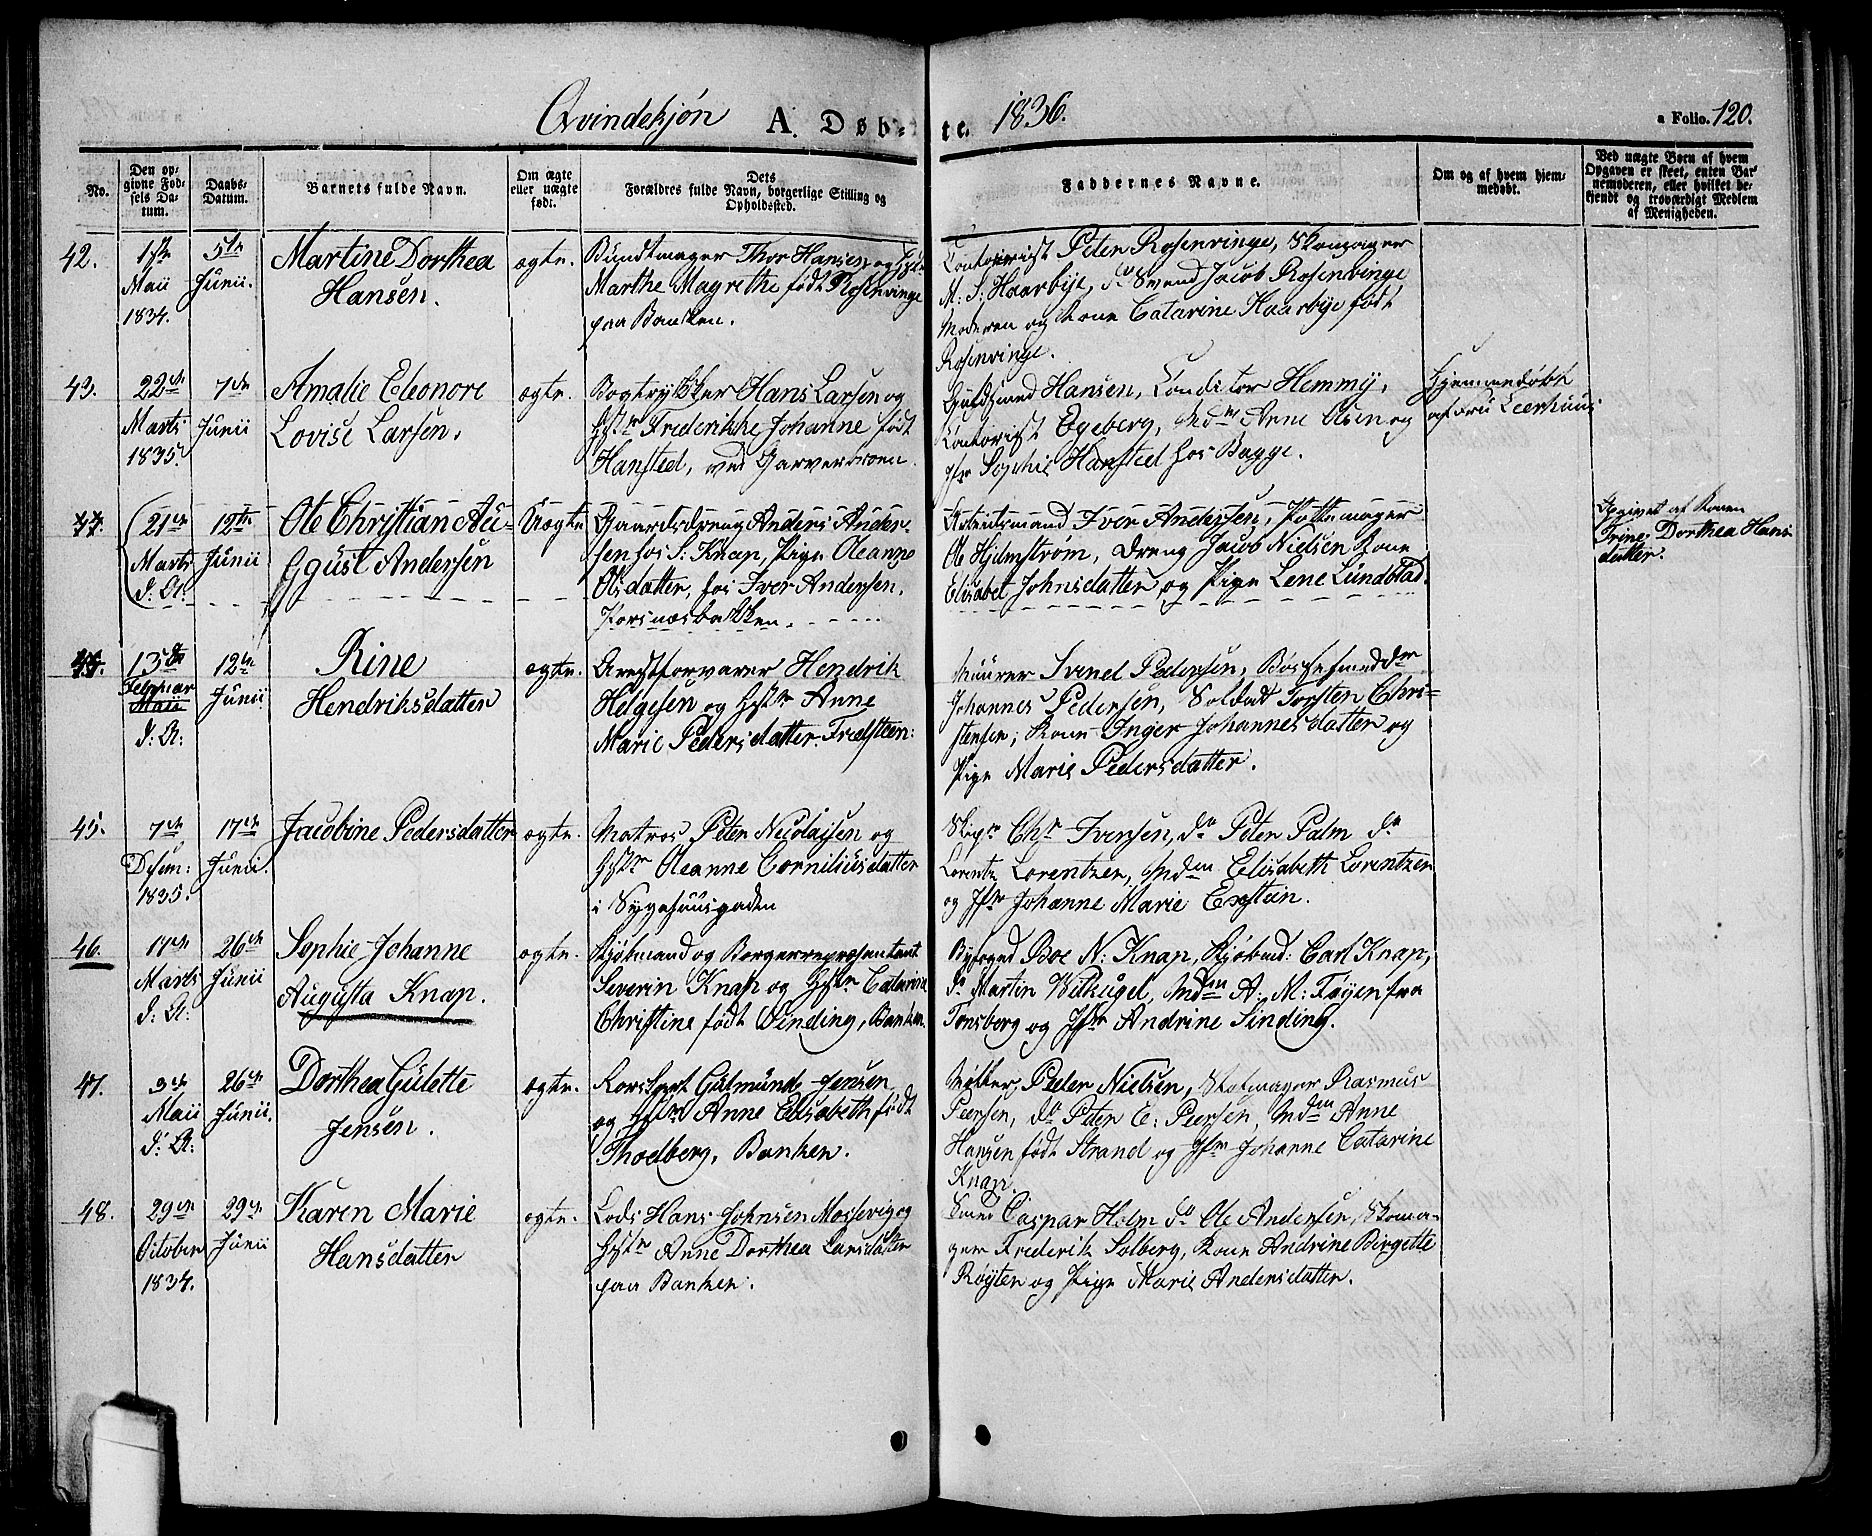 Qvindekjøn A. Døb- te. 1836. a Folio. 120.
No.
Den op-
givne Fød-
sels Da-
tum.
Daabs-
Datum.
Barnets fulde Navn.
Om ægte
eller uægte
født.
Dets
Forældres fulde Navn, borgerlige Stilling og
Opholdssted.
Faddernes Navne.
Om og af hvem hjem-
medøbt.
Ved uægte Børn af hvem
Opgaven er skeet, enten Bar-
nemoderen, eller hvilket be-
kjendt og troværdigt Medlem
af Menigheden.
42.
1ste
Maii
1834.
5te
Junii.
Martine Dorthea
Hansen.
ægte.
Bundtmager Thor Hansen og
Marthe Magrethe født Rosenvinge
paa Banken.
Contorist Peter Rosenvinge, Skomager
M: S: Haarbye, do Svend Jacob Rosenvinge,
Moderen og Kone Catarine Haarbye født
Rosenvinge.
43.
22de
Marts
1835.
7de
Junii
Amalie Eleonore
Lovise Larsen.
ægte.
Bogtrykker Hans Larsen og
Hstr Frederikke Johanne født
Hansted, ved Garverbroen.
Guldsmed Hansen, Conditor Hemmy,
Kontorist Egeberg, Mdm Anne Olsen og
Jfr Sophie Hansted hos Bagge.
Hjemmedøbt
af Fru Leerhuus
44.
21de
Marts
d: A:
12te
Junii
Ole Christian Au-
gust Andersen
Uægte
Gaardsdreng Anders Ander-
sen hos S: Knap, Pige Oleanne
Olsdatter, hos Iver Andersen,
Forsnæsbakken.
Arbeidsmand Iver Andersen, Pottemager
Ole Hjelmstrøm, Dreng Jacob Nielsen Kone
Elisabet Johnsdatter og Pige Lene Lundstad.
Opgivet af Konen
Trine Dorthea Hans-
datter.
13de
Februar
Maii
d: A:
12te
Junii
Rine
Hendriksdatter
ægte.
Arrestforvarer Hendrik
Helgesen og Hstr Anne
Marie Pedersdatter. Fredsteen:
Muurer Svend Pedersen, Bøssesmed
Johannes Pedersen, Soldat Torsten Chri-
stensen; Kone Inger Johannesdatter og
Pige Marie Pedersdatter.
45.
7de
Desem:
1835.
17de
Junii.
Jacobine Pedersdatter
ægte.
Matros Peter Nicolaisen og
Hstr Oleanne Corniliusdatter
i Sygehuusgaden
Skipr Chr Iversen, do Peter Palm do
Lorentz Lorentzen, Mdm Elisabeth Lorentzen
og Jfr Johanne Marie Exstein.
46.
17de
Marts
d: A:
26de
Junii
Sophie Johanne
Augusta Knap.
ægte.
Kjøbmand og Borgerrepræsentant
Severin Knap og Hstr Catarine
Christine født Sinding, Banken.
Byfoged Boe N: Knap, Kjøbmd: Carl Knap,
do Martin Wilkugel, Mdm A. M: Føyen fra
Tønsberg og Jfr Andrine Sinding.
47.
3de
Maii
d: A:
26de
Junii.
Dorthea Gulette
Jensen.
ægte.
Korslagt Gulmund Jensen
og Hstr Anne Elisabeth født
Thoelberg, Banken.
Møller, Peder Nielsen, Skomager Rasmus
Peersen, do Peter E: Peersen, Mdm Anne
Hansen født Strand og Jfr Johanne Catarine
Knap.
48.
29de
October
1834.
29de
Junii
Karen Marie
Hansdatter
ægte.
Lods Hans Johnsen Mossevig og
Hstr Anne Dorthea Larsdatter
paa Banken.
Smed Caspar Holm do Ole Andersen, Skoma-
ger Frederik Solberg, Kone Andrine Birgette
Røyter og Pige Marie Andersdatter.